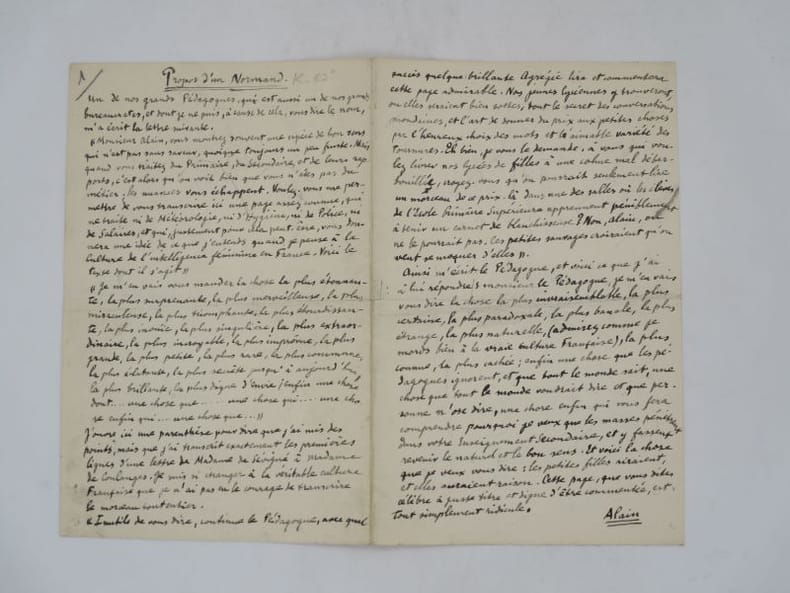 1
Propos d'un Normand.
Un de nos grands Pédagogues, qui est aussi un de nos grands
bureaucrates, et dont je ne puis, à cause de cela, vous dire le nom,
m'a écrit la lettre suivante.
« Monsieur Alain, vous montrez souvent une espèce de bon sens
qui n'est pas sans saveur, quoique toujours un peu fruste. Mais,
quand vous traitez du Primaire, du Secondaire, et de leurs rap-
ports, c'est alors qu'on voit bien que vous n'êtes pas du
métier. les nuances vous échappent. Voulez-vous me per-
mettre de vous transcrire ici une page assez connue, qui
ne traite ni de Météorologie, ni d'Hygiène, ni de Police, ni
de Salaires, et qui, justement pour cela peut-être, vous don-
nera une idée de ce que j'entends quand je pense à la
Culture de l'intelligence féminine en France. Voici le
texte dont il s'agit »
« Je m'en vais vous mander la chose la plus étonnan-
te, la plus surprenante, la plus merveilleuse, la plus
miraculeuse, la plus triomphante, la plus étourdissan-
te, la plus inouïe, la plus singulière, la plus extraor-
dinaire, la plus incroyable, la plus imprévue, la plus
grande, la plus petite, la plus rare, la plus commune,
la plus éclatante, la plus secrète jusqu'à aujourd'hui,
la plus brillante, la plus digne d'envie ; enfin une chose
dont.... une chose que...... une chose qui.... une cho
se enfin qui.... une chose que.... »
J'ouvre ici une parenthèse pour dire que j'ai mis des
points, mais que j'ai transcrit exactement les premières
lignes d'une lettre de Madame de Sévigné à Madame
de Coulanges. Je suis si étranger à la véritable culture
Française que je n'ai pas eu le courage de transcrire
le morceau tout entier.
« Inutile de vous dire, continue le Pédagogue, avec quel
succès quelque brillante Agrégée lira et commentera
cette page admirable. Nos jeunes lycéennes y trouveront
ou elles seraient bien sottes, tout le secret des conversations
mondaines, et l'art de donner du prix aux petites choses
par l'heureux choix des mots et l'aimable variété des
tournures. Eh bien, je vous le demande, à vous qui vou-
lez livrer nos lycées de filles à une cohue mal débar-
bouillée, croyez-vous qu'on pourrait seulement lire
un morceau de ce prix-là dans une des salles où les élèves
de l'École Primaire Supérieure apprennent péniblement
à tenir un carnet de blanchisseuse ? Non, Alain, on
ne le pourrait pas. Ces petites sauvages croiraient qu'on
veut se moquer d'elles ».
Ainsi m'écrit le Pédagogue, et voici ce que j'ai
à lui répondre : monsieur le Pédagogue, je m'en vais
vous dire la chose la plus invraisemblable, la plus
certaine, la plus paradoxale, la plus banale, la plus
étrange, la plus naturelle, (admirez comme je
mords bien à la vraie culture Française), la plus
connue, la plus cachée ; enfin une chose que les pé-
dagogues ignorent, et que tout le monde sait, une
chose que tout le monde voudrait dire et que per-
sonne n'ose dire, une chose enfin qui vous fera
comprendre pourquoi je veux que les masses pénètrent
dans votre Enseignement Secondaire, et y fassent
revenir le naturel et le bon sens. Et voici la chose
que je veux vous dire : les petites filles riraient,
et elles auraient raison. Cette page, que vous dites
célèbre à juste titre et digne d'être commentée, est
tout simplement ridicule.
Alain